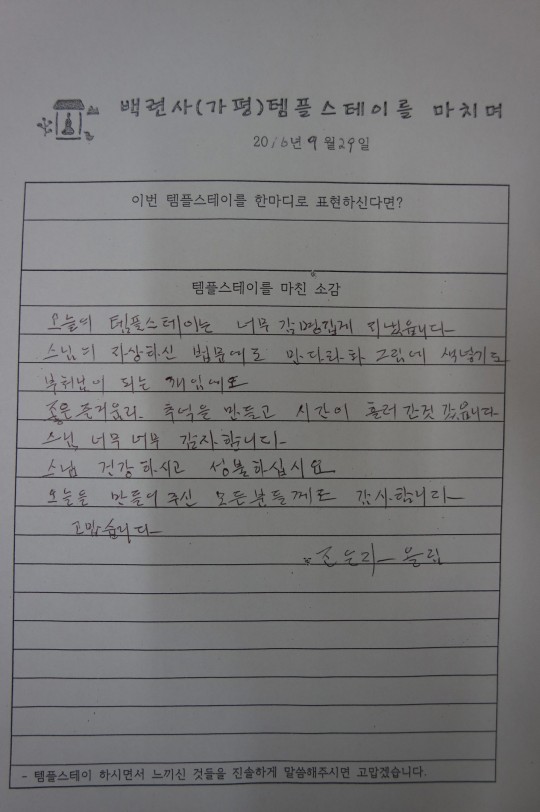 백련사(가평)템플스테이를 마치며
2016년 9월 29일
이번 템플스테이를 한마디로 표현하신다면?
템플스테이를 마친 소감
오늘의 템플스테이는 너무 감명깊게 지냈읍니다
스님의 자상하신 법문에도 만다라화 그림에 색넣기도
부처님이 되는 게임에도
좋은 즐거움과 추억을 만들고 시간이 흘러 간것 같읍니다
스님 너무 너무 감사합니다
스님 건강하시고 성불하십시요
오늘을 만들어 주신 모든분들께도 감사합니다
고맙습니다
올림
- 템플스테이 하시면서 느끼신 것들을 진솔하게 말씀해주시면 고맙겠습니다.